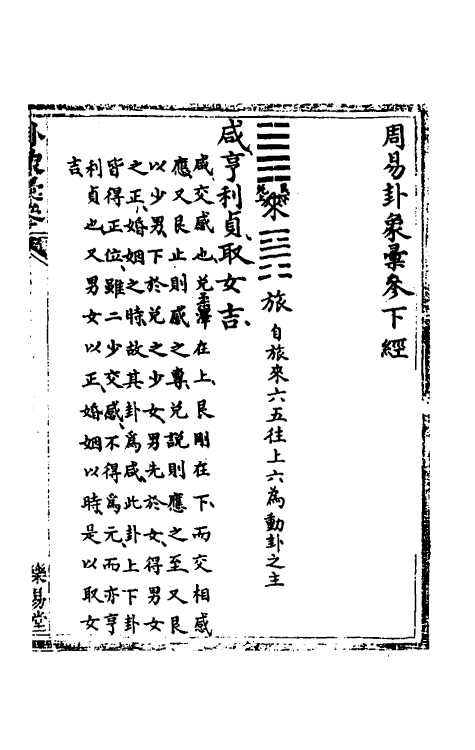 周易卦象彙參下經
來
旅 自旅來六五往上六為動卦之主
咸亨利貞取女吉
咸交感也兌柔澤在上艮剛在下而交相感
應又艮止則感之專兌說則應之至又艮
以少男下於兌之少女男先於女得男女
之正婚姻之時故其卦為咸此卦上下卦
皆得正位雖二少交感不得為元而亦亨
利貞也又男女以正婚姻以時是以取女
吉
樂易堂